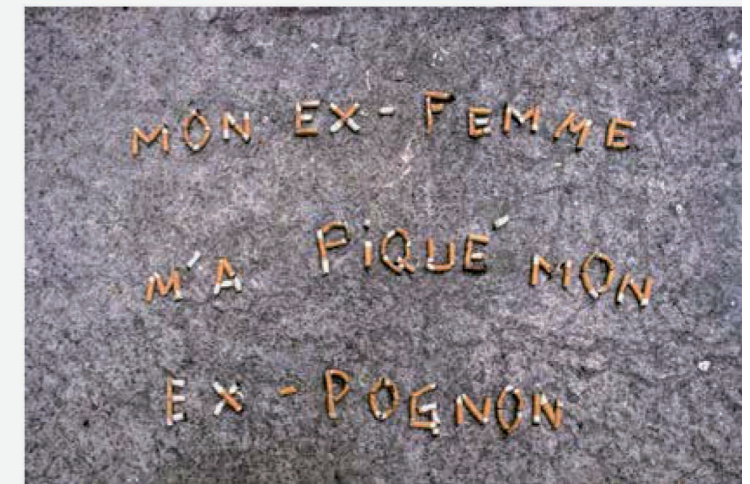 MON EX-FEMME
M'A PiQUÉ MON
EX-POGNON